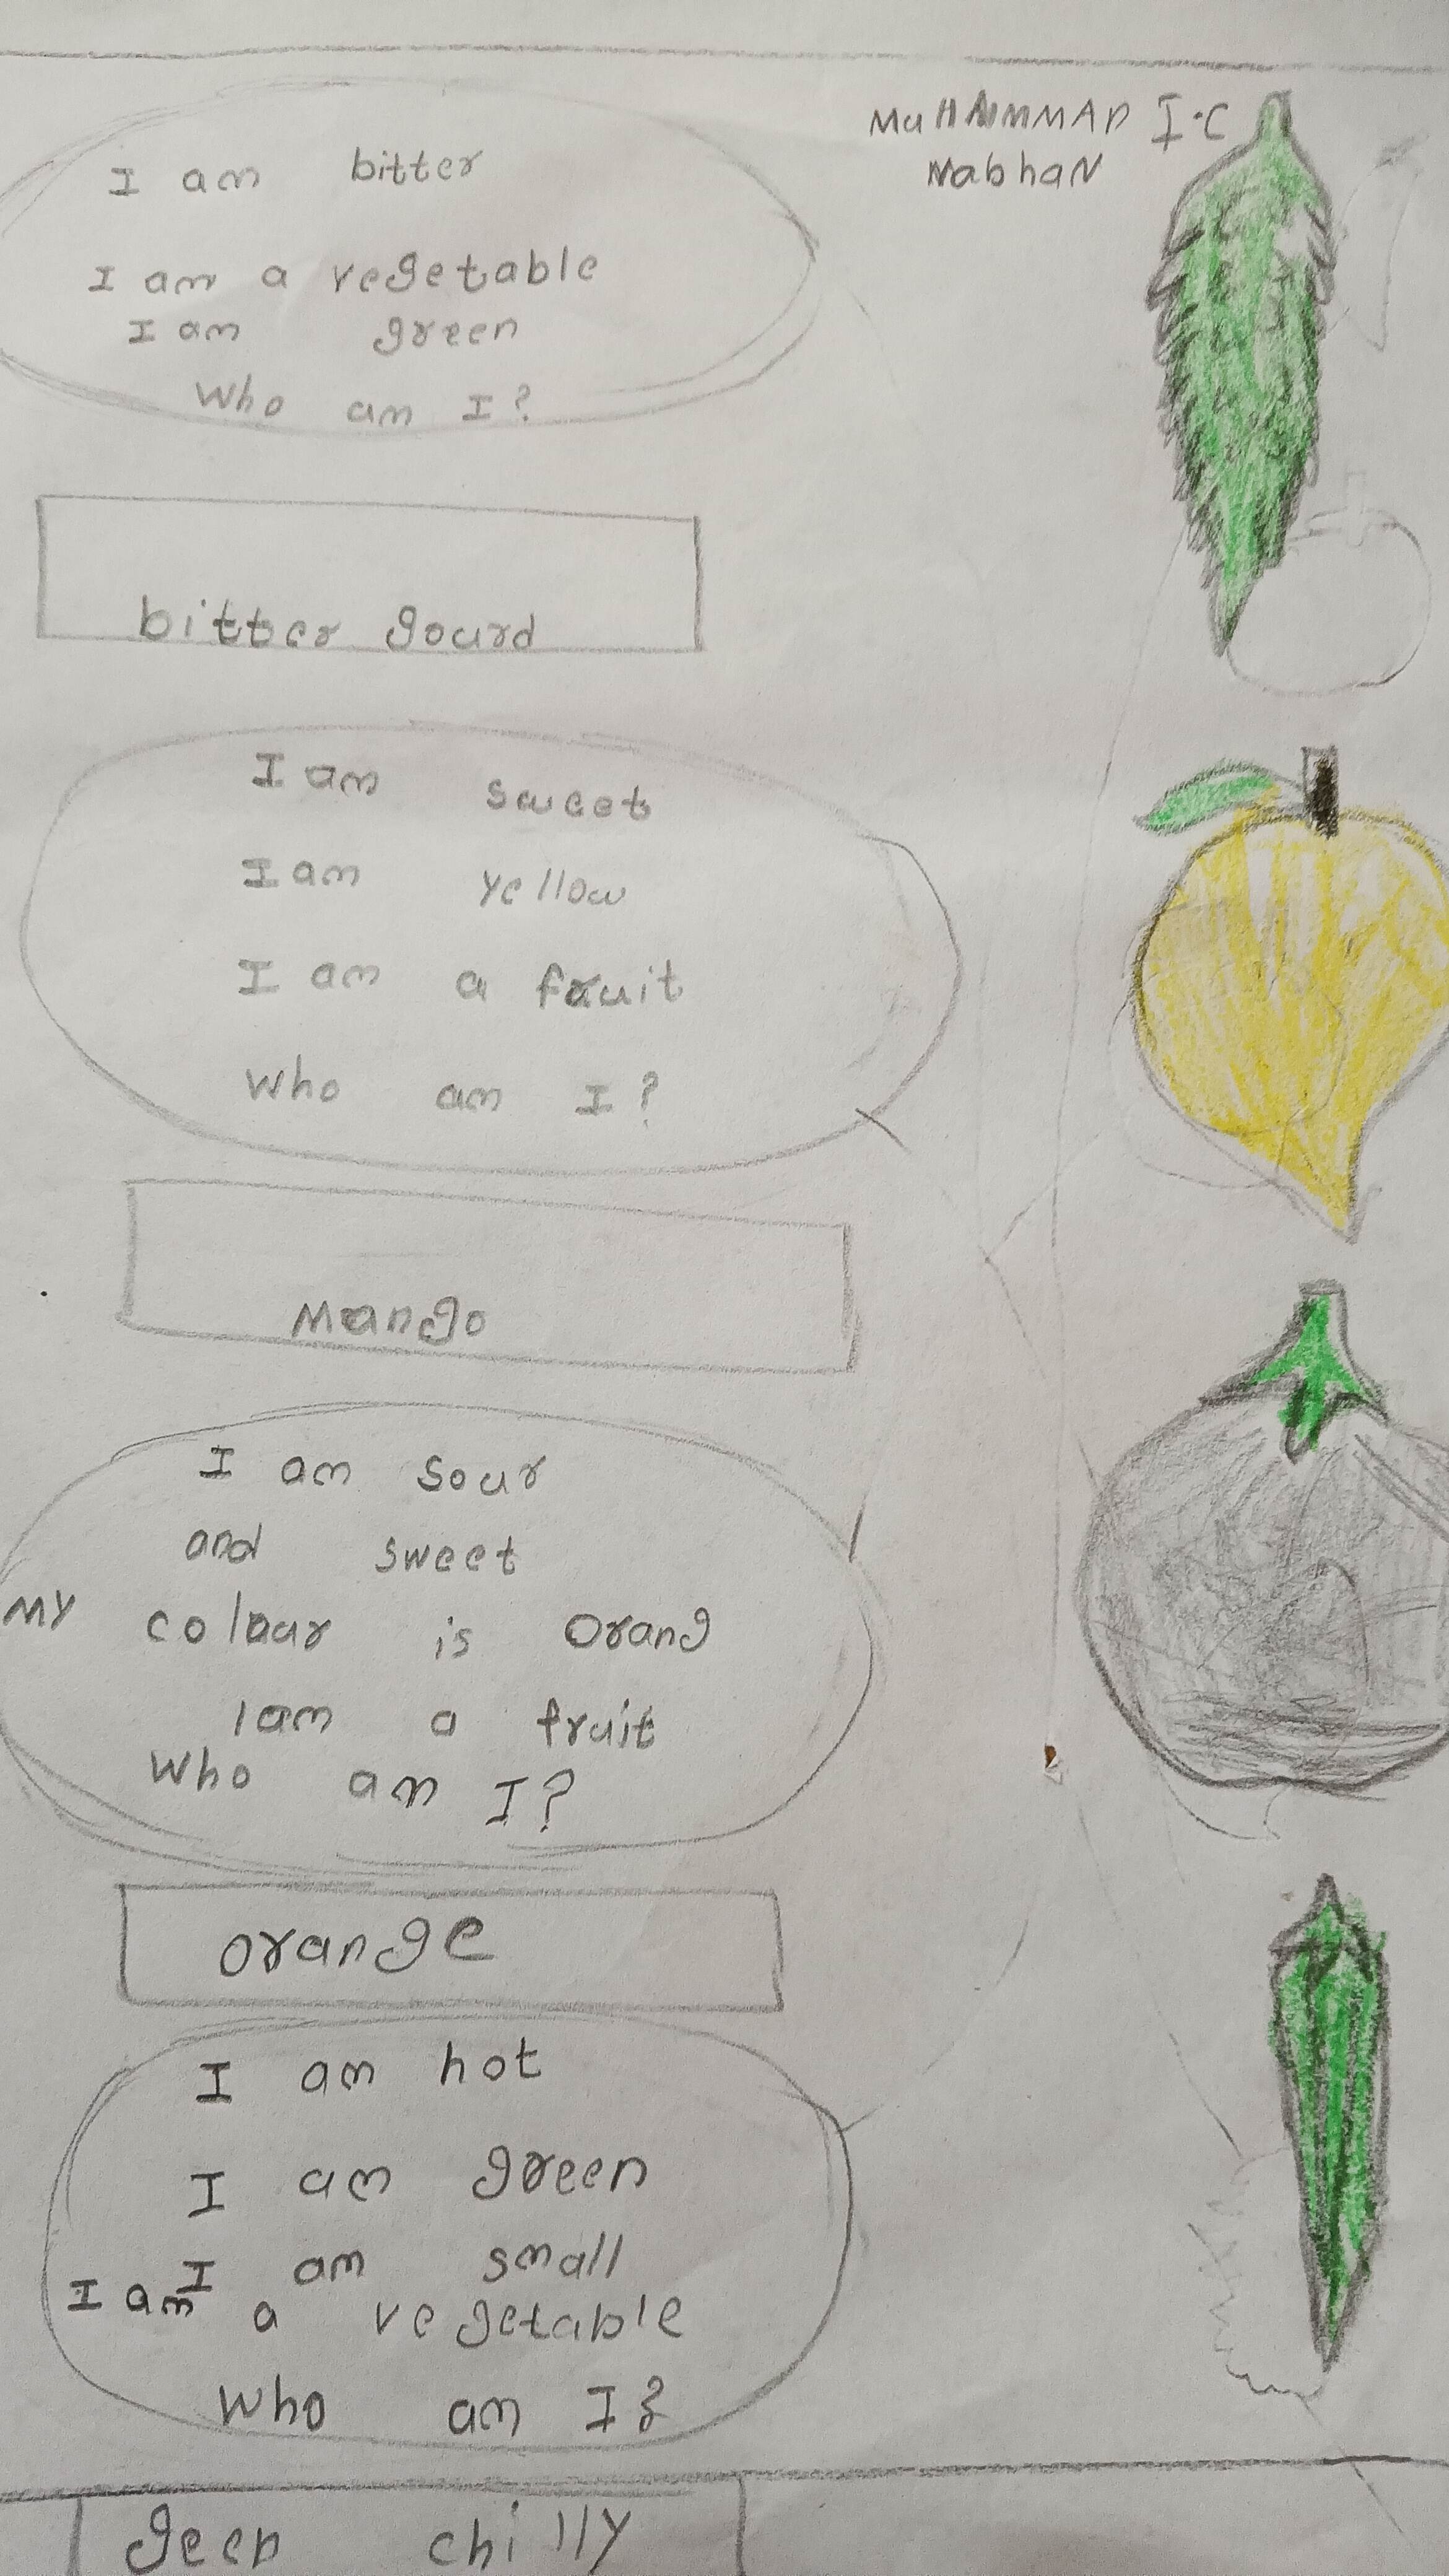 MuHAMMAD I.C
NabhaN
I am bitter
I am a vegetable
I am green
Who am I?
bitter gourd
I am sweet
I am yellow
I am a fruit
Who am I?
Mango
I am sour
and sweet
MY colour is Orang
I am a fruit
Who am I?
orange
I am hot
I am green
I am small
I am a vegetable
Who am I?
geen chilly